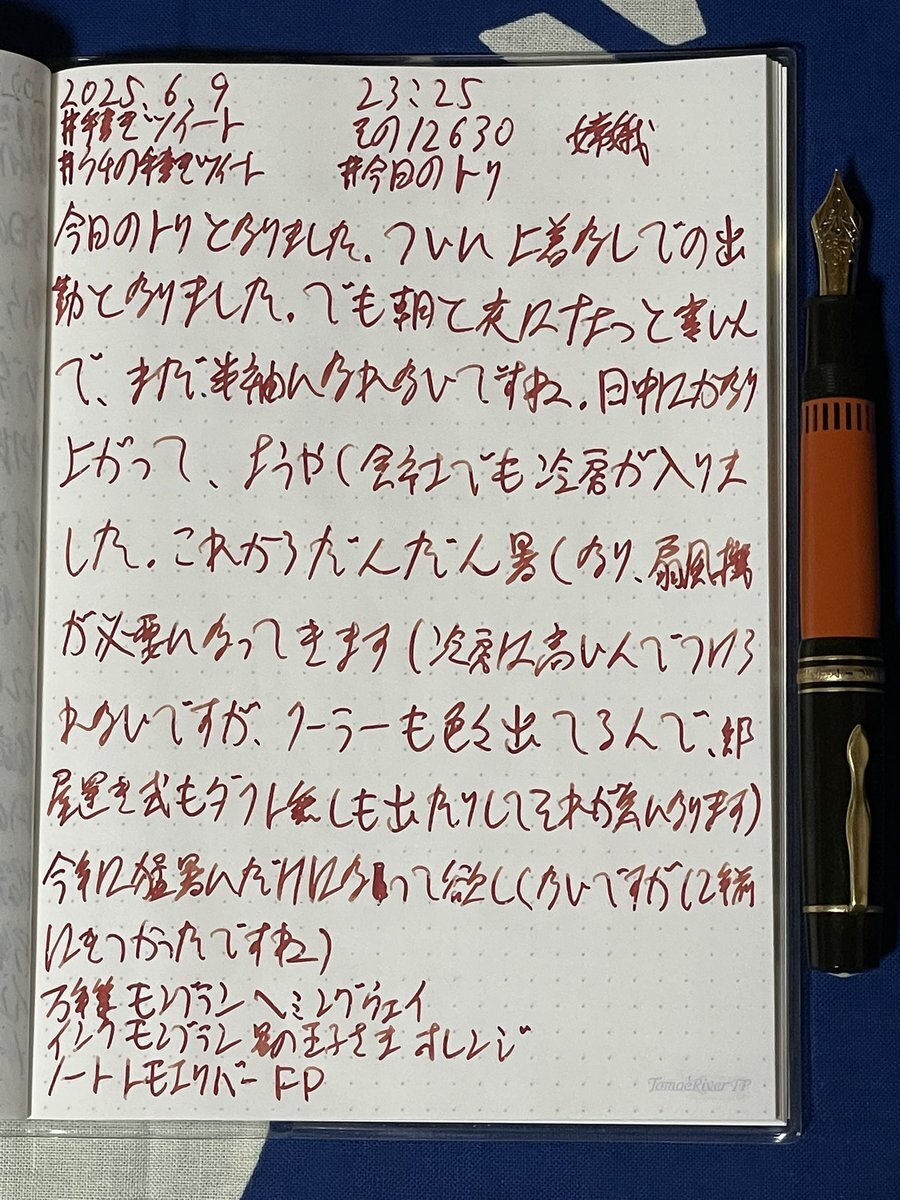 2025.6.9 23:25
#手書きツイート その12630 嫦娥
#ウチの手書きツイート #今日のトリ
今日のトリとなりました。ついに上着なしでの出
勤となりました。でも朝と夜はちょっと寒いん
で、まだ半袖になれないですね。日中はかなり
上がって、ようやく会社でも冷房が入りま
した。これからだんだん暑くなり、扇風機
が必要になってきます(冷房は高いんでつけら
れないですが、クーラーも色々出てるんで、部
屋置き式もダクト無しも出たりしてそれが気になります)
今年は猛暑にだけはなって欲しくないですが(2年前
はきつかったですね)
万年筆 モンブラン ヘミングウェイ
インク モンブラン 星の王子さま オレンジ
ノート トモエリバー FP
TomoeRiver FP